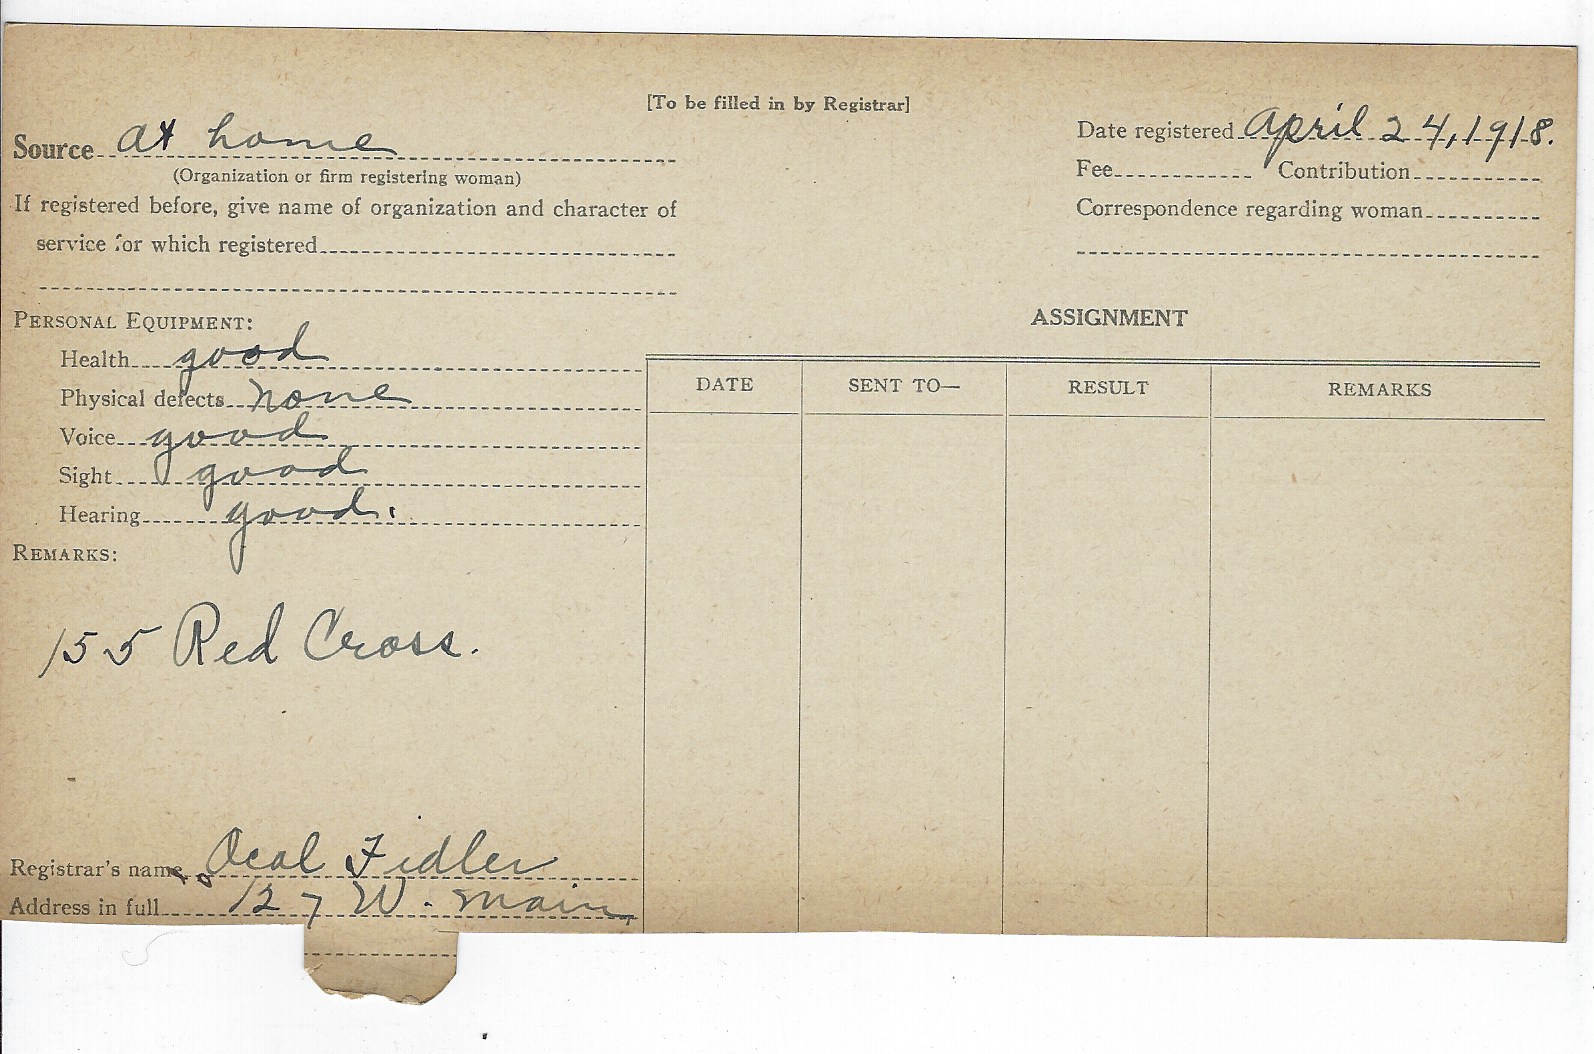 [To be filled in by Registrar]
Source at home
(Organization or firm registering woman)
If registered before, give name of organization and character of
service for which registered
Date registered April 24, 1918.
Fee Contribution
Correspondence regarding woman
PERSONAL EQUIPMENT:
Health good
Physical defects none
Voice good
Sight good
Hearing good.
REMARKS:
155 Red Cross.
Registrar's name Ocal Fidler
Address in full 127 W. Main
ASSIGNMENT
DATE SENT TO— RESULT REMARKS